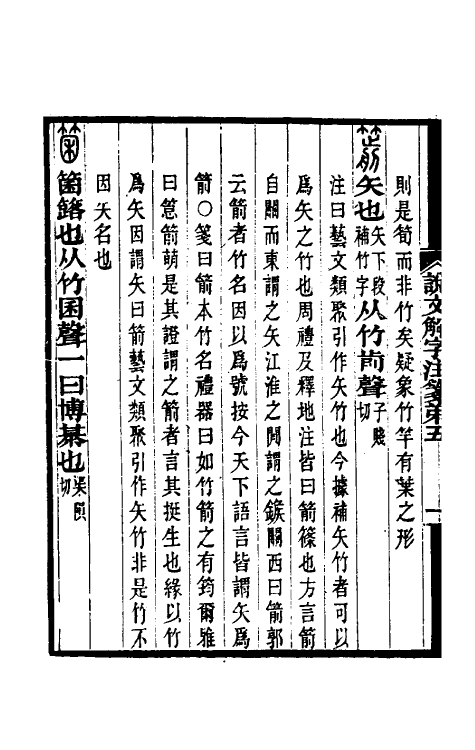 說文解字注箋第五 一
則是筍而非竹矣疑象竹竿有葉之形
箭 矢也矢下段補竹字从竹歬聲子賤切
注曰藝文類聚引作矢竹也今據補矢竹者可以
爲矢之竹也周禮及釋地注皆曰箭篠也方言箭
自關而東謂之矢江淮之閒謂之鍭關西曰箭郭
云箭者竹名因以爲號按今天下語言皆謂矢爲
箭○箋曰箭本竹名禮器曰如竹箭之有筠爾雅
曰䈚箭萌是其證謂之箭者言其挺生也緣以竹
爲矢因謂矢曰箭藝文類聚引作矢竹非是竹不
因矢名也
箘 箘簬也从竹囷聲一曰博棊也渠隕切